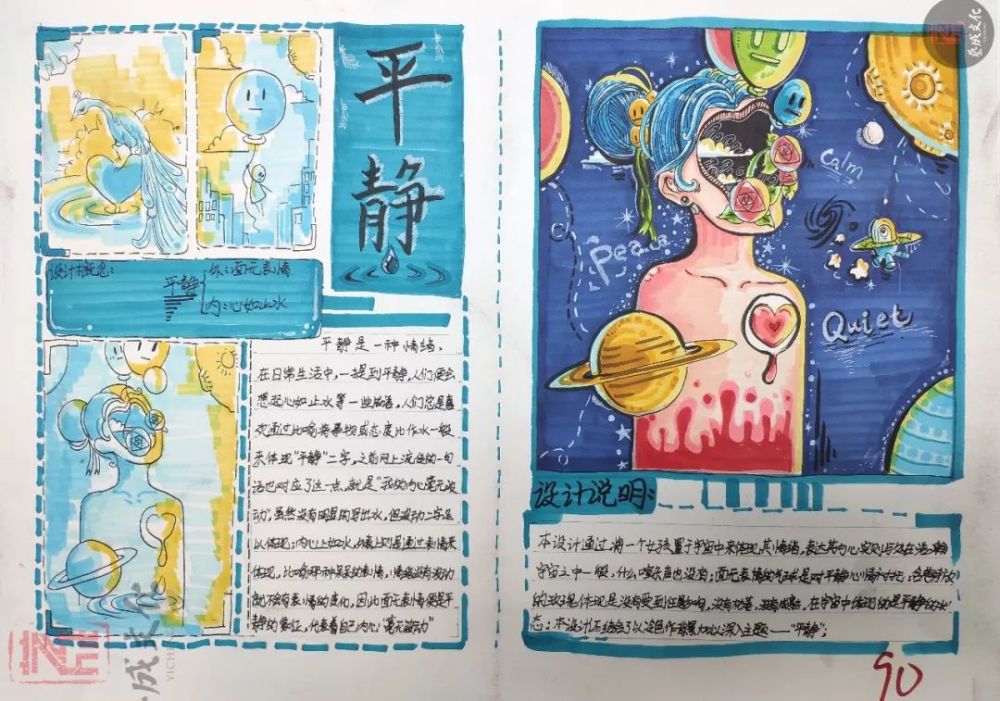 平静
设计构思：
平静
外：面无表情
内：心如止水
平静是一种情绪，
在日常生活中，一提到平静，人们便会
想起心如止水等一些成语，人们总是喜
欢通过比喻将事物或态度比作水一般
来体现“平静”二字，之前网上流传的一句
话也对应了这一点，就是“我的内心毫无波
动”虽然没有明显的写出水，但波动二字足
以体现：内心止如水，
体现，比如那种呆呆的表情，情绪没有波动
就不会有表情的变化，因此面无表情便是平
静的象征，代表着自己内心“毫无波动”
Peace
Calm
Quiet
设计说明：
本设计通过将一个女孩置于宇宙中来体现其情绪，表达其内心实则与处在浩瀚
宇宙之中一般，什么喧杂声也没有；面无表情的气球是对平静心情
的玫瑰体现是没有受到任何影响，没有枯萎，没有凋零，在宇宙中体现的是平静的状
态；本设计还结合了以冷色作背景加以深入主题——“平静”；
90
艺成文化
YICH